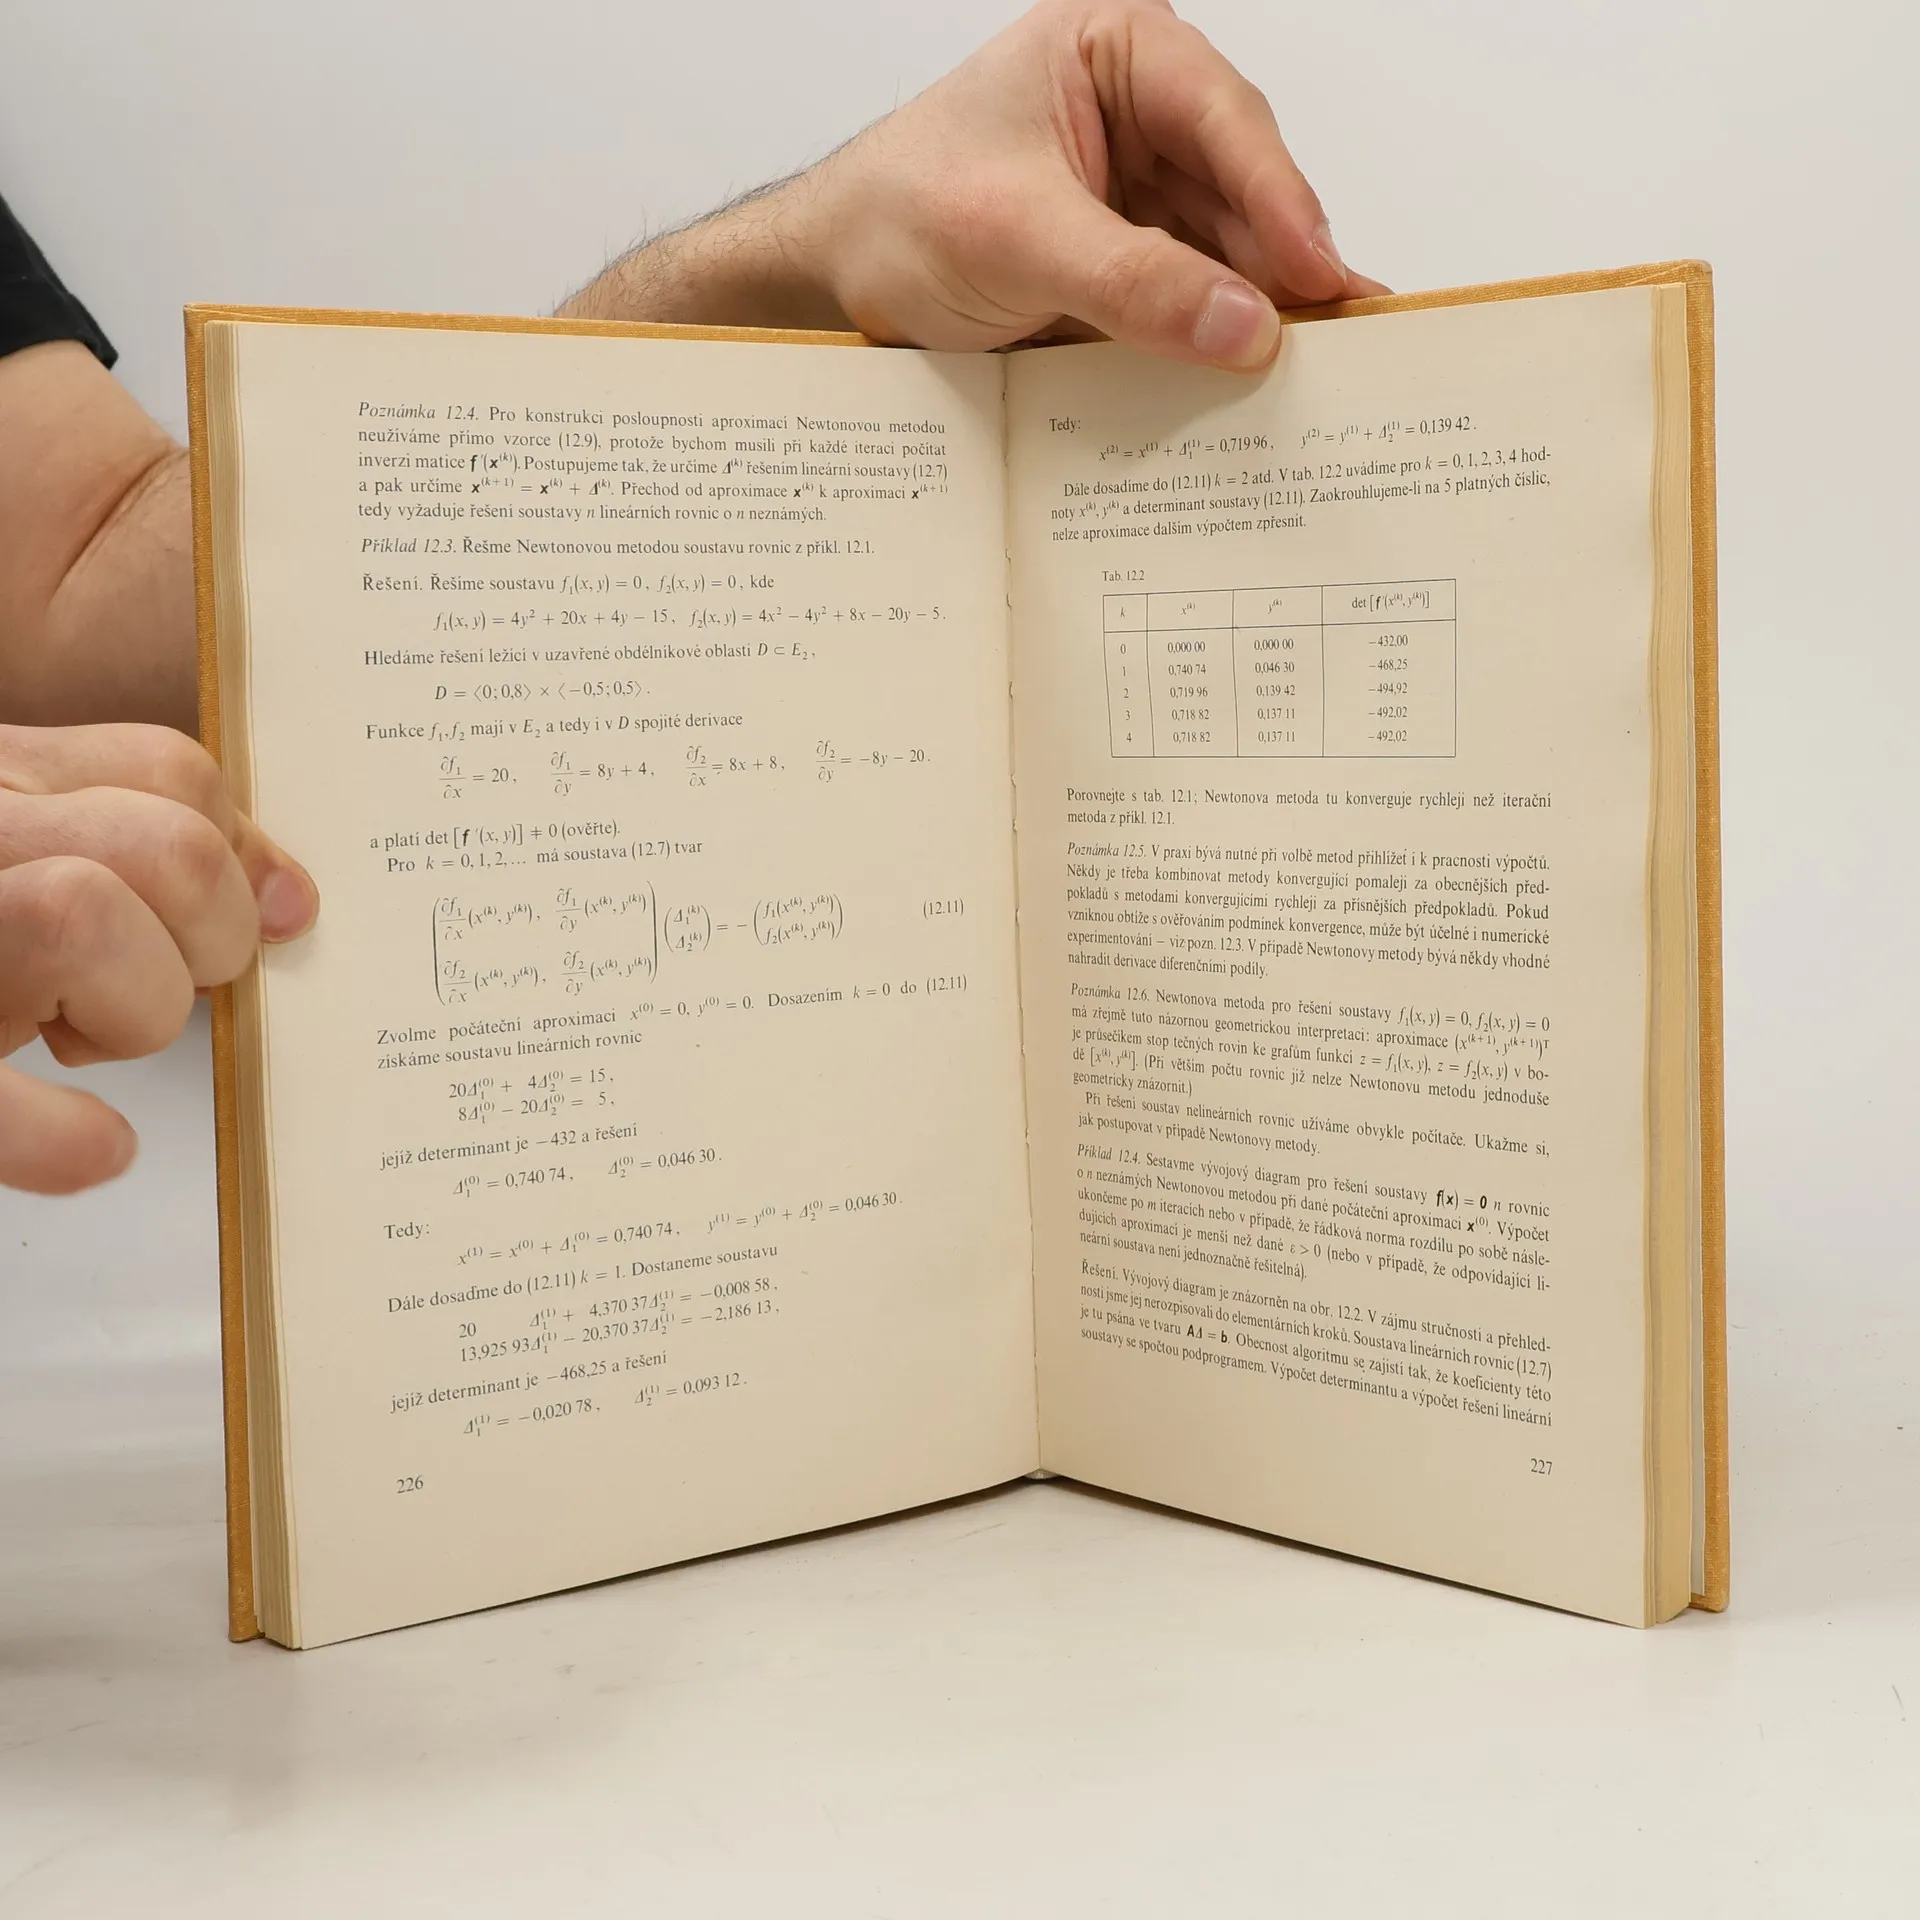 Poznámka 12.4. Pro konstrukci posloupnosti aproximací Newtonovou metodou
neužíváme přímo vzorce (12.9), protože bychom musili při každé iteraci počítat
inverzi matice f′(x⁽ᵏ⁾). Postupujeme tak, že určíme Δ⁽ᵏ⁾ řešením lineární soustavy (12.7)
a pak určíme x⁽ᵏ⁺¹⁾ = x⁽ᵏ⁾ + Δ⁽ᵏ⁾. Přechod od aproximace x⁽ᵏ⁾ k aproximaci x⁽ᵏ⁺¹⁾
tedy vyžaduje řešení soustavy n lineárních rovnic o n neznámých.
Příklad 12.3. Řešme Newtonovou metodou soustavu rovnic z příkl. 12.1.
Řešení. Řešíme soustavu f₁(x, y) = 0, f₂(x, y) = 0, kde
f₁(x, y) = 4y² + 20x + 4y − 15, f₂(x, y) = 4x² − 4y² + 8x − 20y − 5.
Hledáme řešení ležící v uzavřené obdélníkové oblasti D ⊂ E₂,
D = ⟨0; 0,8⟩ × ⟨−0,5; 0,5⟩.
Funkce f₁, f₂ mají v E₂ a tedy i v D spojité derivace
∂f₁/∂x = 20, ∂f₁/∂y = 8y + 4, ∂f₂/∂x = 8x + 8, ∂f₂/∂y = −8y − 20.
a platí det [f′(x, y)] ≠ 0 (ověřte).
Pro k = 0, 1, 2, ... má soustava (12.7) tvar
(∂f₁/∂x (x⁽ᵏ⁾, y⁽ᵏ⁾), ∂f₁/∂y (x⁽ᵏ⁾, y⁽ᵏ⁾)) (Δ₁⁽ᵏ⁾) = − (f₁(x⁽ᵏ⁾, y⁽ᵏ⁾)) (12.11)
(∂f₂/∂x (x⁽ᵏ⁾, y⁽ᵏ⁾), ∂f₂/∂y (x⁽ᵏ⁾, y⁽ᵏ⁾)) (Δ₂⁽ᵏ⁾) (f₂(x⁽ᵏ⁾, y⁽ᵏ⁾))
Zvolme počáteční aproximaci x⁽⁰⁾ = 0, y⁽⁰⁾ = 0. Dosazením k = 0 do (12.11)
získáme soustavu lineárních rovnic
20Δ₁⁽⁰⁾ + 4Δ₂⁽⁰⁾ = 15,
8Δ₁⁽⁰⁾ − 20Δ₂⁽⁰⁾ = 5,
jejíž determinant je −432 a řešení
Δ₁⁽⁰⁾ = 0,740 74, Δ₂⁽⁰⁾ = 0,046 30.
Tedy:
x⁽¹⁾ = x⁽⁰⁾ + Δ₁⁽⁰⁾ = 0,740 74, y⁽¹⁾ = y⁽⁰⁾ + Δ₂⁽⁰⁾ = 0,046 30.
Dále dosaďme do (12.11) k = 1. Dostaneme soustavu
20 Δ₁⁽¹⁾ + 4,370 37Δ₂⁽¹⁾ = −0,008 58,
13,925 93Δ₁⁽¹⁾ − 20,370 37Δ₂⁽¹⁾ = −2,186 13,
jejíž determinant je −468,25 a řešení
Δ₁⁽¹⁾ = −0,020 78, Δ₂⁽¹⁾ = 0,093 12.
226
Tedy:
x⁽²⁾ = x⁽¹⁾ + Δ₁⁽¹⁾ = 0,719 96, y⁽²⁾ = y⁽¹⁾ + Δ₂⁽¹⁾ = 0,139 42.
Dále dosadíme do (12.11) k = 2 atd. V tab. 12.2 uvádíme pro k = 0, 1, 2, 3, 4 hod-
noty x⁽ᵏ⁾, y⁽ᵏ⁾ a determinant soustavy (12.11). Zaokrouhlujeme-li na 5 platných číslic,
nelze aproximace dalším výpočtem zpřesnit.
Tab. 12.2
k x⁽ᵏ⁾ y⁽ᵏ⁾ det [f′(x⁽ᵏ⁾, y⁽ᵏ⁾)]
0 0,000 00 0,000 00 −432,00
1 0,740 74 0,046 30 −468,25
2 0,719 96 0,139 42 −494,92
3 0,718 82 0,137 11 −492,02
4 0,718 82 0,137 11 −492,02
Porovnejte s tab. 12.1; Newtonova metoda tu konverguje rychleji než iterační
metoda z příkl. 12.1.
Poznámka 12.5. V praxi bývá nutné při volbě metod přihlížet i k pracnosti výpočtů.
Někdy je třeba kombinovat metody konvergující pomaleji za obecnějších před-
pokladů s metodami konvergujícími rychleji za přísnějších předpokladů. Pokud
vzniknou obtíže s ověřováním podmínek konvergence, může být účelné i numerické
experimentování – viz pozn. 12.3. V případě Newtonovy metody bývá někdy vhodné
nahradit derivace diferenčními podíly.
Poznámka 12.6. Newtonova metoda pro řešení soustavy f₁(x, y) = 0, f₂(x, y) = 0
má zřejmě tuto názornou geometrickou interpretaci: aproximace (x⁽ᵏ⁺¹⁾, y⁽ᵏ⁺¹⁾)ᵀ
je průsečíkem stop tečných rovin ke grafům funkcí z = f₁(x, y), z = f₂(x, y) v bo-
dě [x⁽ᵏ⁾, y⁽ᵏ⁾]. (Při větším počtu rovnic již nelze Newtonovu metodu jednoduše
geometricky znázornit.)
Při řešení soustav nelineárních rovnic užíváme obvykle počítače. Ukažme si,
jak postupovat v případě Newtonovy metody.
Příklad 12.4. Sestavme vývojový diagram pro řešení soustavy f(x) = 0 n rovnic
o n neznámých Newtonovou metodou při dané počáteční aproximaci x⁽⁰⁾. Výpočet
ukončeme po m iteracích nebo v případě, že řádková norma rozdílu po sobě násle-
dujících aproximací je menší než dané ε > 0 (nebo v případě, že odpovídající li-
neární soustava není jednoznačně řešitelná).
Řešení. Vývojový diagram je znázorněn na obr. 12.2. V zájmu stručnosti a přehled-
nosti jsme jej nerozpisovali do elementárních kroků. Soustava lineárních rovnic (12.7)
je tu psána ve tvaru AΔ = b. Obecnost algoritmu se zajistí tak, že koeficienty této
soustavy se spočtou podprogramem. Výpočet determinantu a výpočet řešení lineární
227